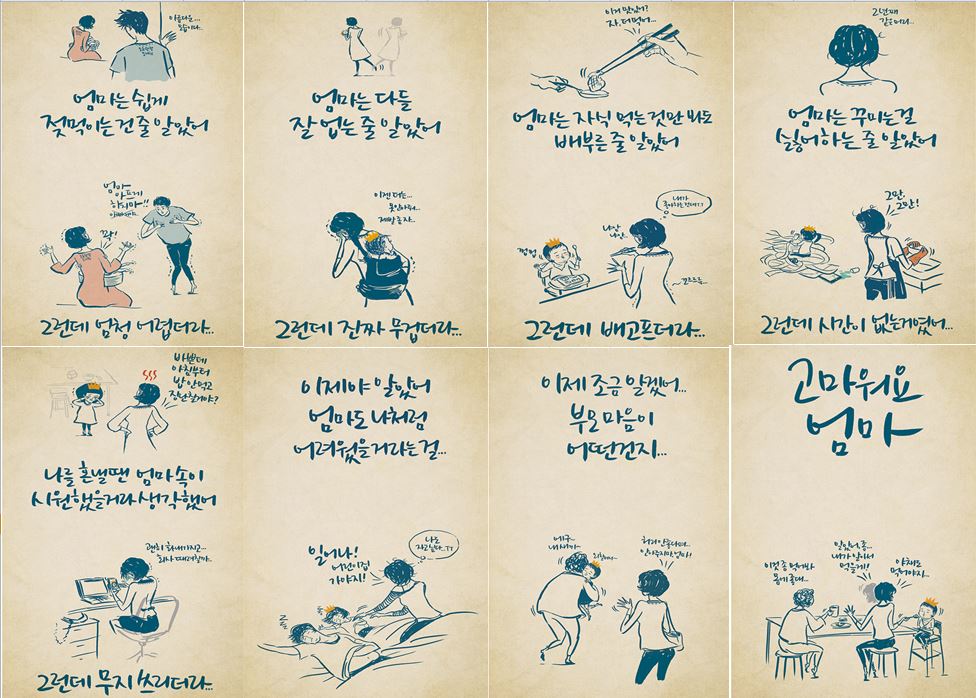 아름다운...
모습이다...
엄마는 쉽게
젖먹이는건 줄 알았어
엄마
아프게
하지마~!!
꽉!
그런데 엄청 어렵더라..
엄마는 다들
잘 업는 줄 알았어
이젠 더는...
못안아줘...
제발 좀 자...
그런데 진짜 무겁더라...
이거 맛있지?
자, 더 먹어...
엄마는 자식 먹는 것만 봐도
배부른 줄 알았어
내가
좋아하는건데 ㅜㅜ
냠냠
그런데 배고프더라...
2년째
같은머리..
엄마는 꾸미는걸
싫어하는 줄 알았어
그만,
그만!
그런데 시간이 없는거였어...
바쁜데
아침부터
밥 안먹고
장난칠거야?
나를 혼낼땐 엄마속이
시원했을거라 생각했어
괜히 화내가지고...
그런데 무지 쓰리더라...
이제야 알았어
엄마도 나처럼
어려웠을거라는걸...
나도
자고싶다..ㅜㅜ
일어나!
어린이집
가야지!
이제 조금 알겠어...
부모 마음이
어떤건지...
에구
내새끼~
허리 안좋다며...
안아주지마 엄마!
고마워요
엄마
이것 좀 먹어봐
몸에 좋대...
있잖아 좀..
내가 알아서
먹을게!
야채도
먹어야지..